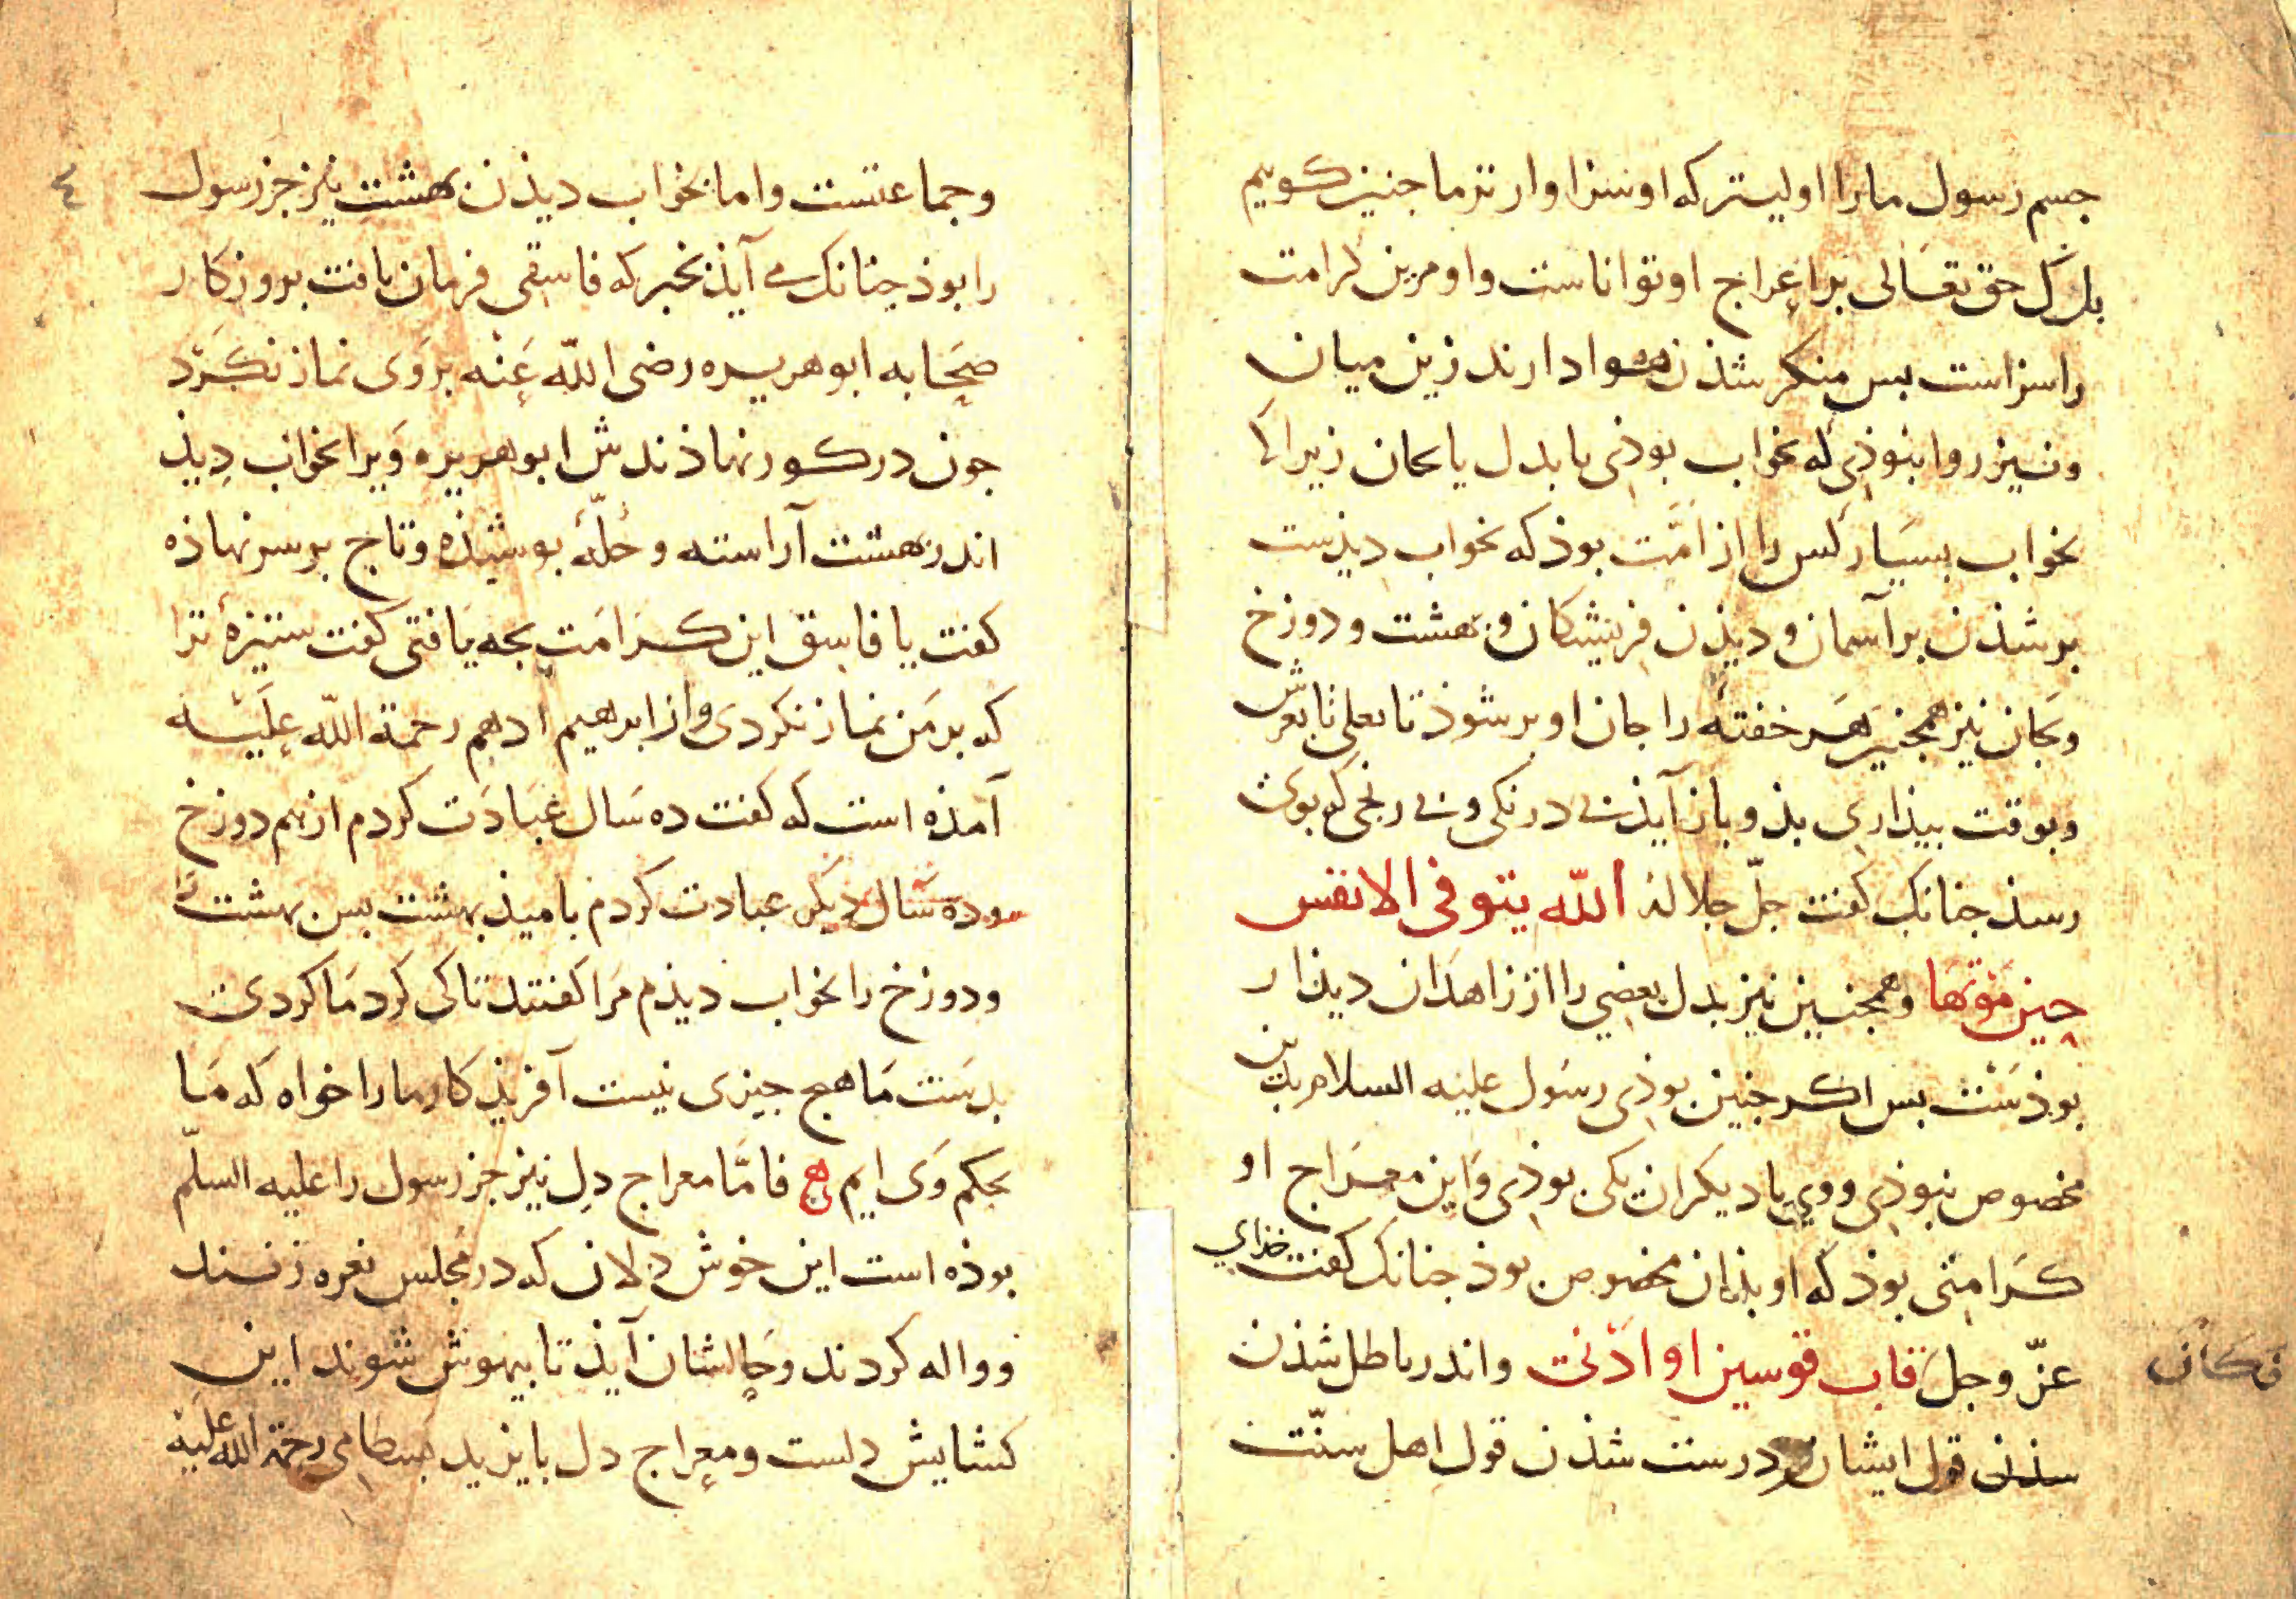 جسم رسول ما را اولیتر که او سزاوارتر ما جنین کوییم
بل کل حق تعالی برا عراج او تواناست و او مرین کرامت
را سزاست بس منکر شذن هوا دارند زین میان
و نیز روا نبوذی که بخواب بوذی یا بدل یا بجان زیرا که
بخواب بسیار کس را از امّت بوذ که بخواب دیذست
بر شذن بر آسمان و دیذن فریشتکان و بهشت و دوزخ
و بجان نیز همجنین هر خفته را جان او بر شوذ تا بعلی تا بعرش
و بوقت بیذاری بذو باز آیذ نی درنکی و نی رنجی کو بوی
رسذ جنانک کفت جلّ جلاله الله یتوفی الانفس
حین موتها و همجنین نیز بدل بعضی را از زاهدان دیذار
بوذست بس اکر جنین بوذی رسول علیه السلام بدین
مخصوص نبوذی و وی با دیکران یکی بوذی و این معراج او
کرامتی بوذ که او بذان مخصوص بوذ جنانک کفت خدای
فکان
عزّ و جلّ قاب قوسین او ادنی و اندر باطل شذن
شذن قول ایشان درست شذن قول اهل سنّت
٤
و جماعتست و اما بخواب دیذن بهشت نیز جز رسول
را بوذ جنانک می آیذ بخبر که فاسقی فرمان یافت بروزکار
صحابه ابو هریره رضی الله عنه بر وی نماز نکرد
جون در کور نهاذندش ابو هریره ویرا بخواب دیذ
اندر بهشت آراسته و حلّه بوشیذه و تاج بر سر نهاذه
کفت یا فاسق این کرامت بجه یافتی کفت ستیزه ترا
که بر من نماز نکردی و از ابرهیم ادهم رحمة الله علیه
آمذه است که کفت ده سال عبادت کردم از بیم دوزخ
و ده سال دیکر عبادت کردم بامیذ بهشت بس بهشت
و دوزخ را بخواب دیذم مرا کفتند تا کی کرد ما کردی
بدست ما هیج جیزی نیست آفریذکار ما را خواه که ما
بحکم وی ایم فامّا معراج دل نیز جز رسول را علیه السلّم
بوذه است این خوش دلان که در مجلس نعره زنند
و واله کردند و حالشان آیذ تا بیهوش شوند این
کشایش دلست و معراج دل بایزید بسطامی رحمة الله علیه